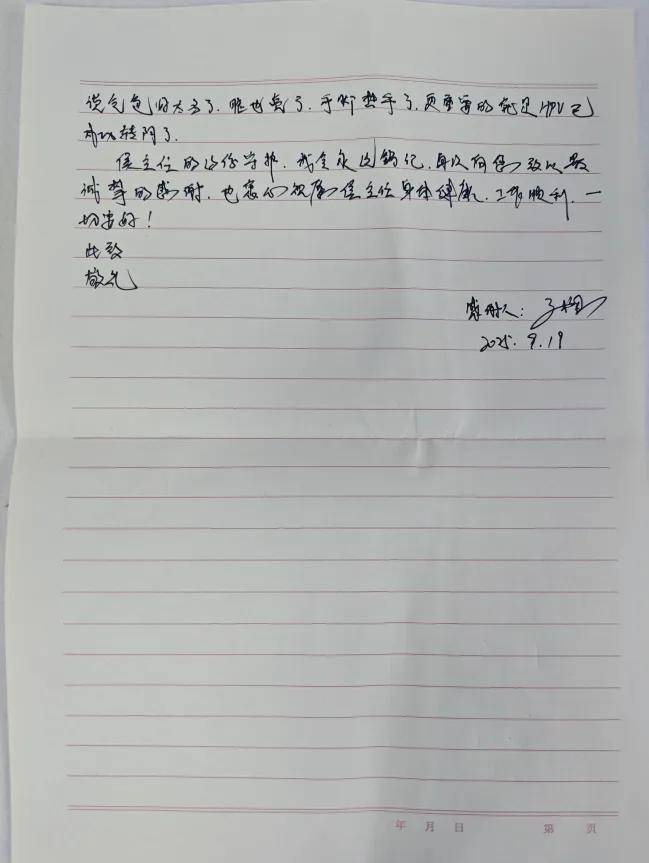 说气色好太多了，眼也亮了，手脚热乎了，更重要的就是HPV已
成功转阴了。
侯主任的这份守护，我会永远铭记，再次向您致以最
诚挚的感谢，也衷心祝愿侯主任身体健康、工作顺利，一
切安好！
此致
敬礼
感谢人：
2025.9.19
年 月 日 第 页